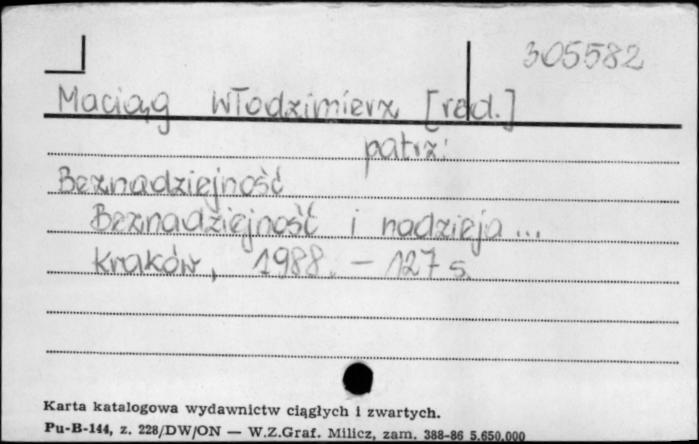 305582
Maciąg Włodzimierz [red.]
patrz:
Beznadziejność
Beznadziejność i nadzieja...
Kraków, 1988. – 127 s.
Karta katalogowa wydawnictw ciągłych i zwartych.
Pu-B-144, z. 228/DW/ON — W.Z.Graf. Milicz, zam. 388-86 5.650.000